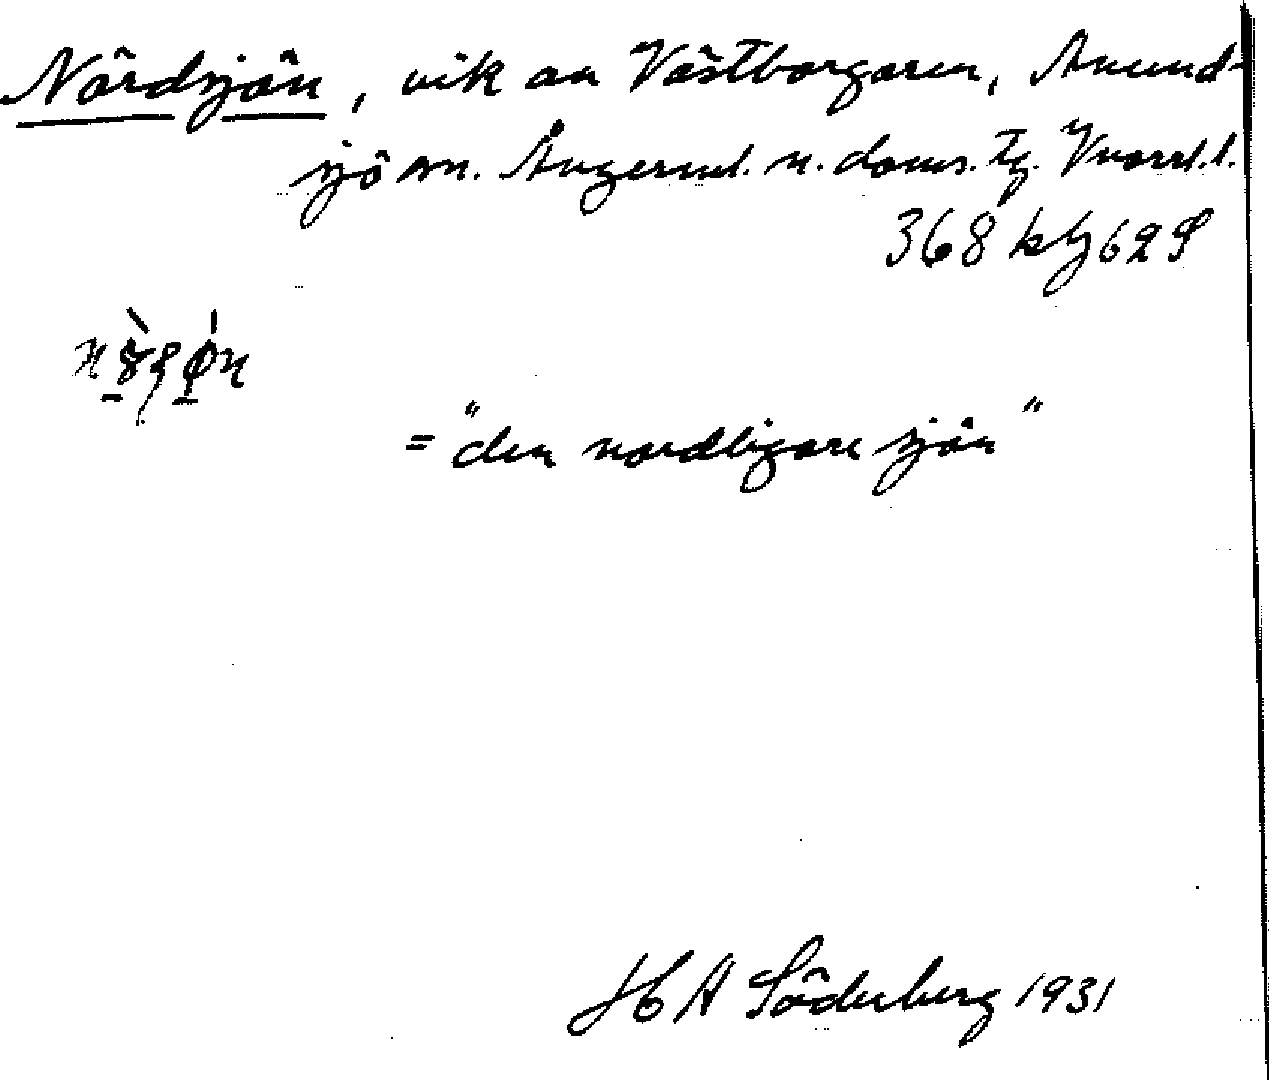 Nördsjön, vik av Västborgaren, Anund-
sjö sn. Ångerml. n. doms. tg. Västl. l.
368
= "den nordligare sjön"
H A Söderberg 1931